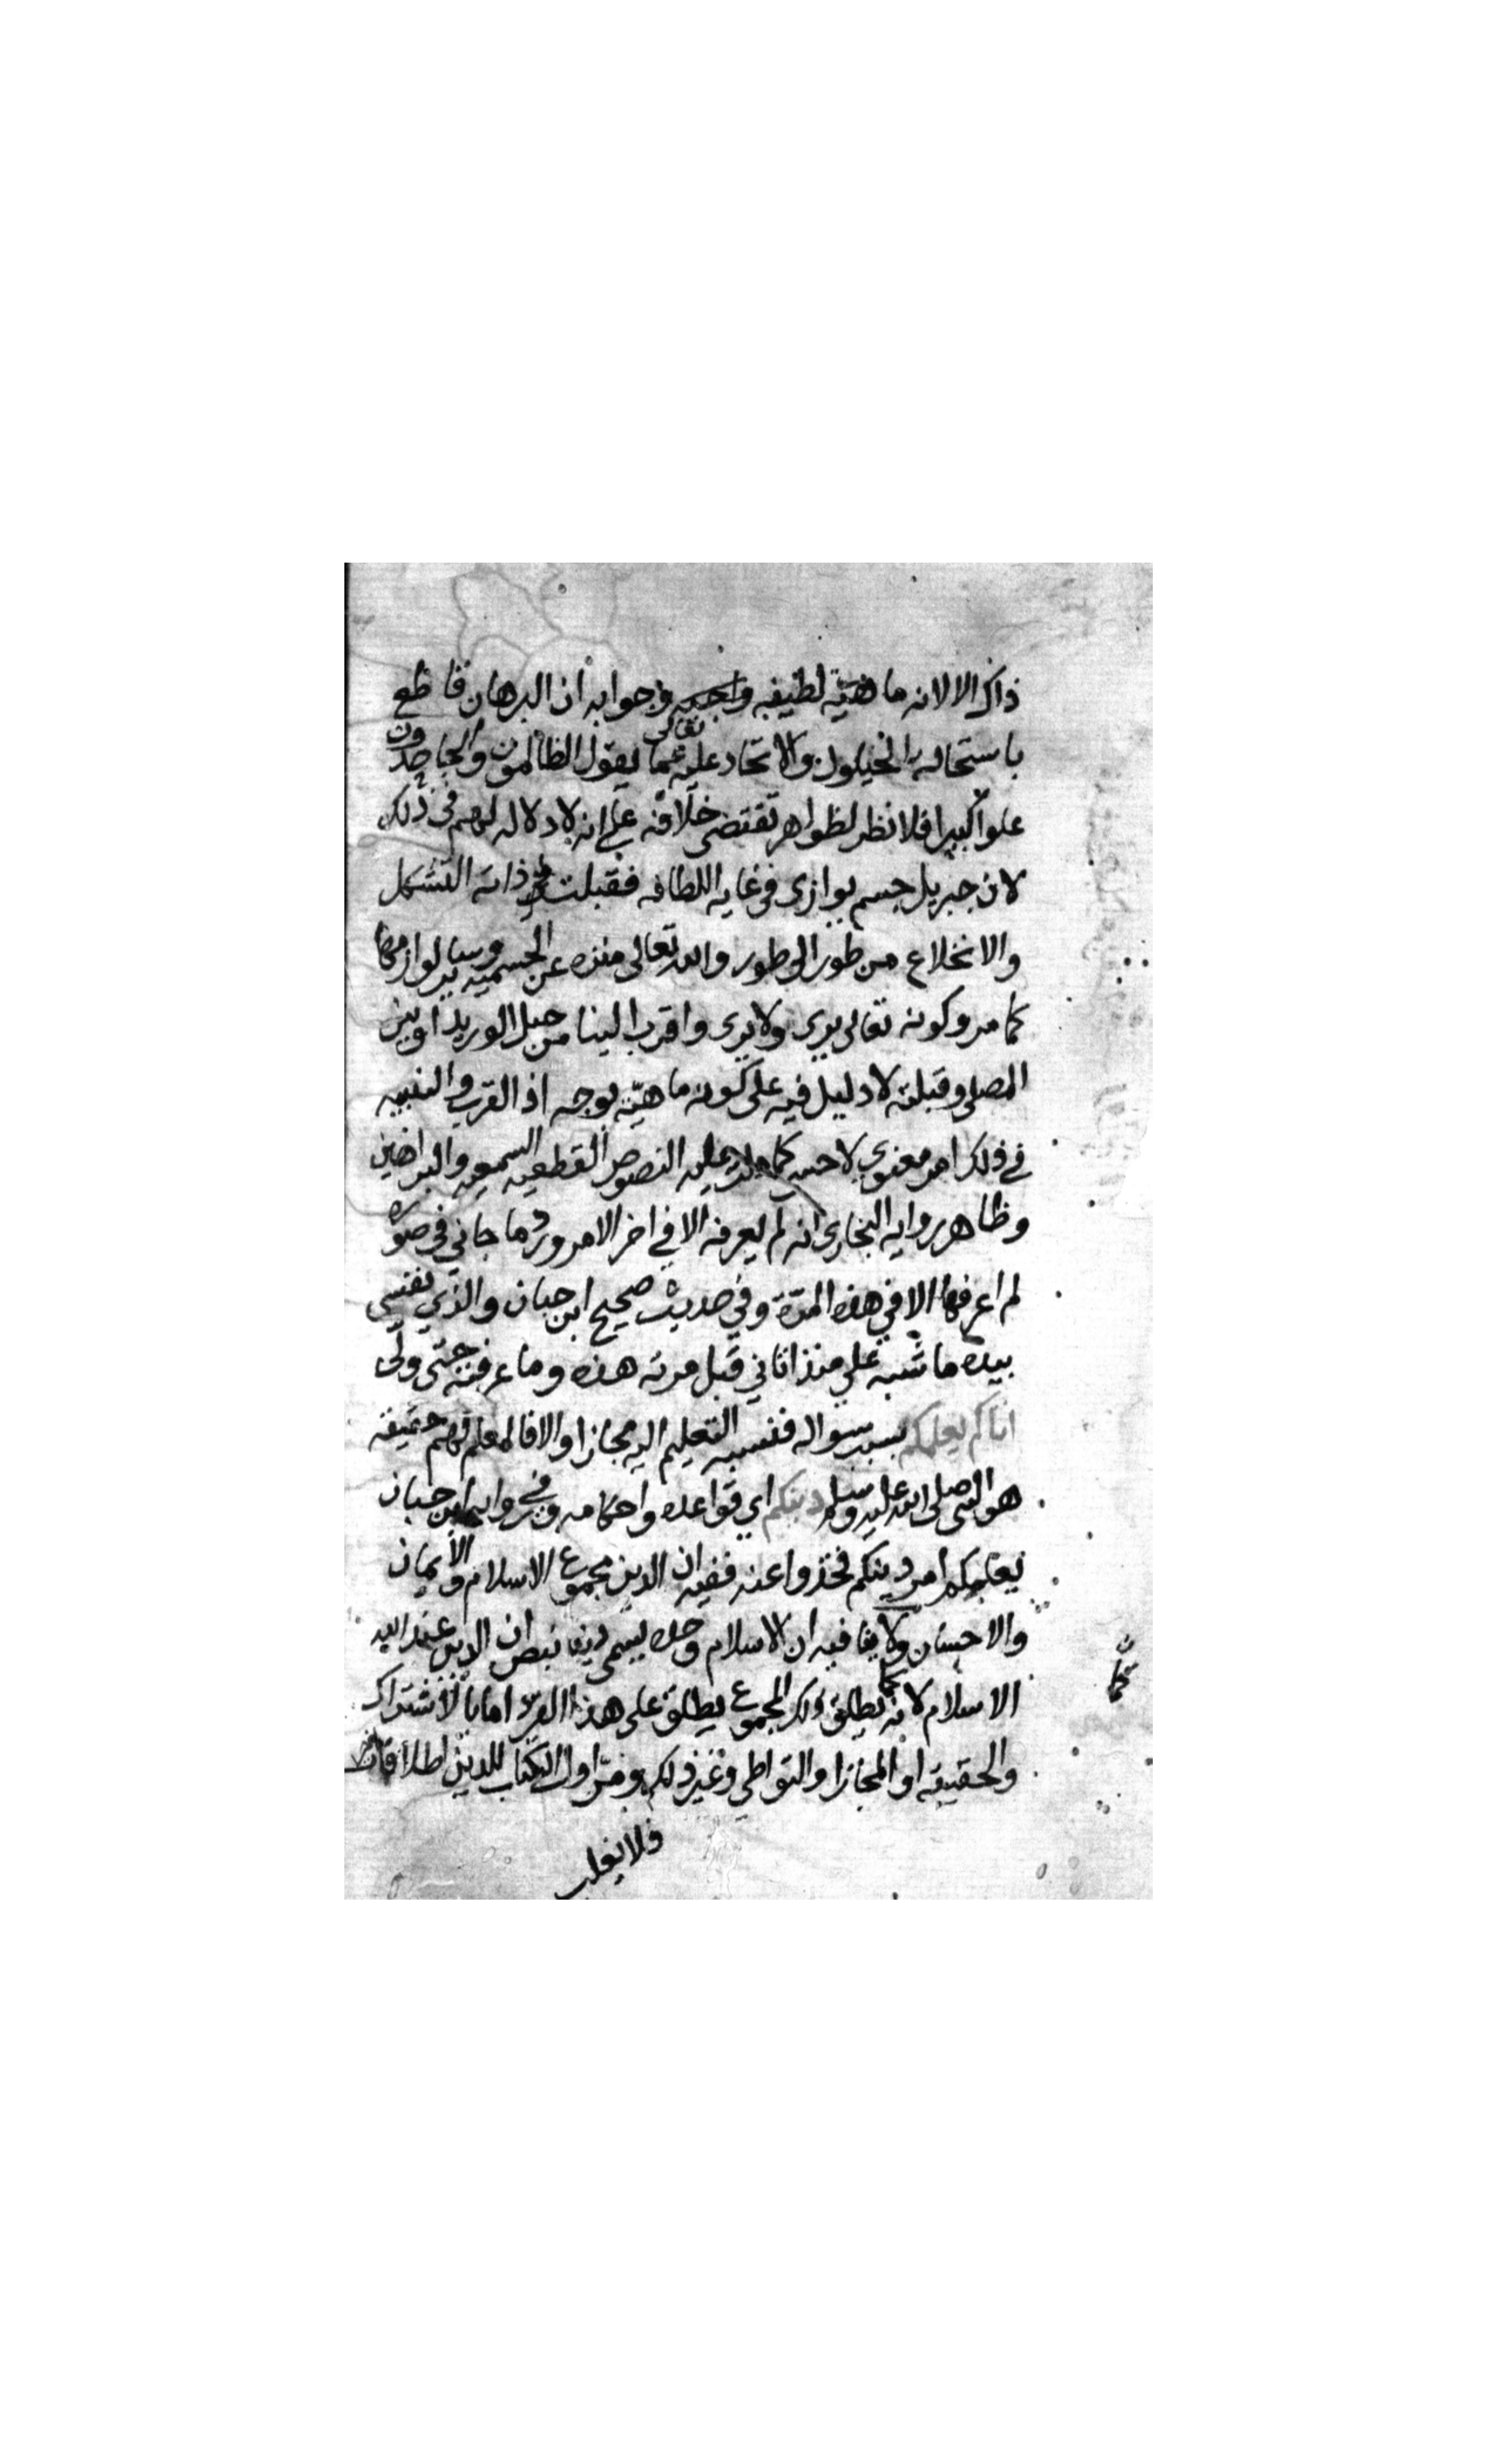 ذاك الا لانه ماهيّة لطيفه واجبه وجوابه ان البرهان قاطع
باستحاله الحلول والاتحاد عليه تعالى عما يقول الظالمون والجاحدون
علوا كبيرا فلا نظر لظواهر تقتضى خلافه على انه لا دلاله لهم فى ذلك
لان جبريل جسم نوارنى فى غايه اللطافه فقبلت ذاته التشكل
والانخلاع من طور الى طور والله تعالى منزه عن الجسميه وساير لوازمها
كما مر وكونه تعالى يرى ولا يرى واقرب الينا من حبل الوريد او بين
المصلى وقبلته لا دليل فيه على كونه ماهيّة بوجه اذ القرب والبينيه
في ذلك امر معنوي لا حسي كما دلت عليه النصوص القطعيه السمعيه والبراهين
وظاهر روايه البخارى انه لم يعرفه الا في اخر الامر وورد ما جاني فى صوره
لم اعرفها الا في هذه المرّة وفي حديث صحيح ابن حبان والذي نفسي
بيده ما شبه علي منذ اتاني قبل مرته هذه وما عرفته حتى ولى
اتاكم يعلمكم بسبب سواله فنسبه التعليم اليه مجازا والا فالمعلم لهم حقيقه
هو النبى صلى الله عليه وسلم دينكم اي قواعده واحكامه وفي روايه ابن حبان
يعلمكم امر دينكم فخذوا عنه ففيه ان الدين مجموع الاسلام والايمان
والاحسان ولا ينافيه ان الاسلام وحده يسمى دينا بنص ان الدين عند الله
الاسلام لانه كما يطلق ذلك المجموع يطلق على هذا الفرد اما بالاشتراك
والحقيقه او المجازا والتواطي وغير ذلك ومرّ اول الكتاب للدين اطلاقات
فلا يغلب